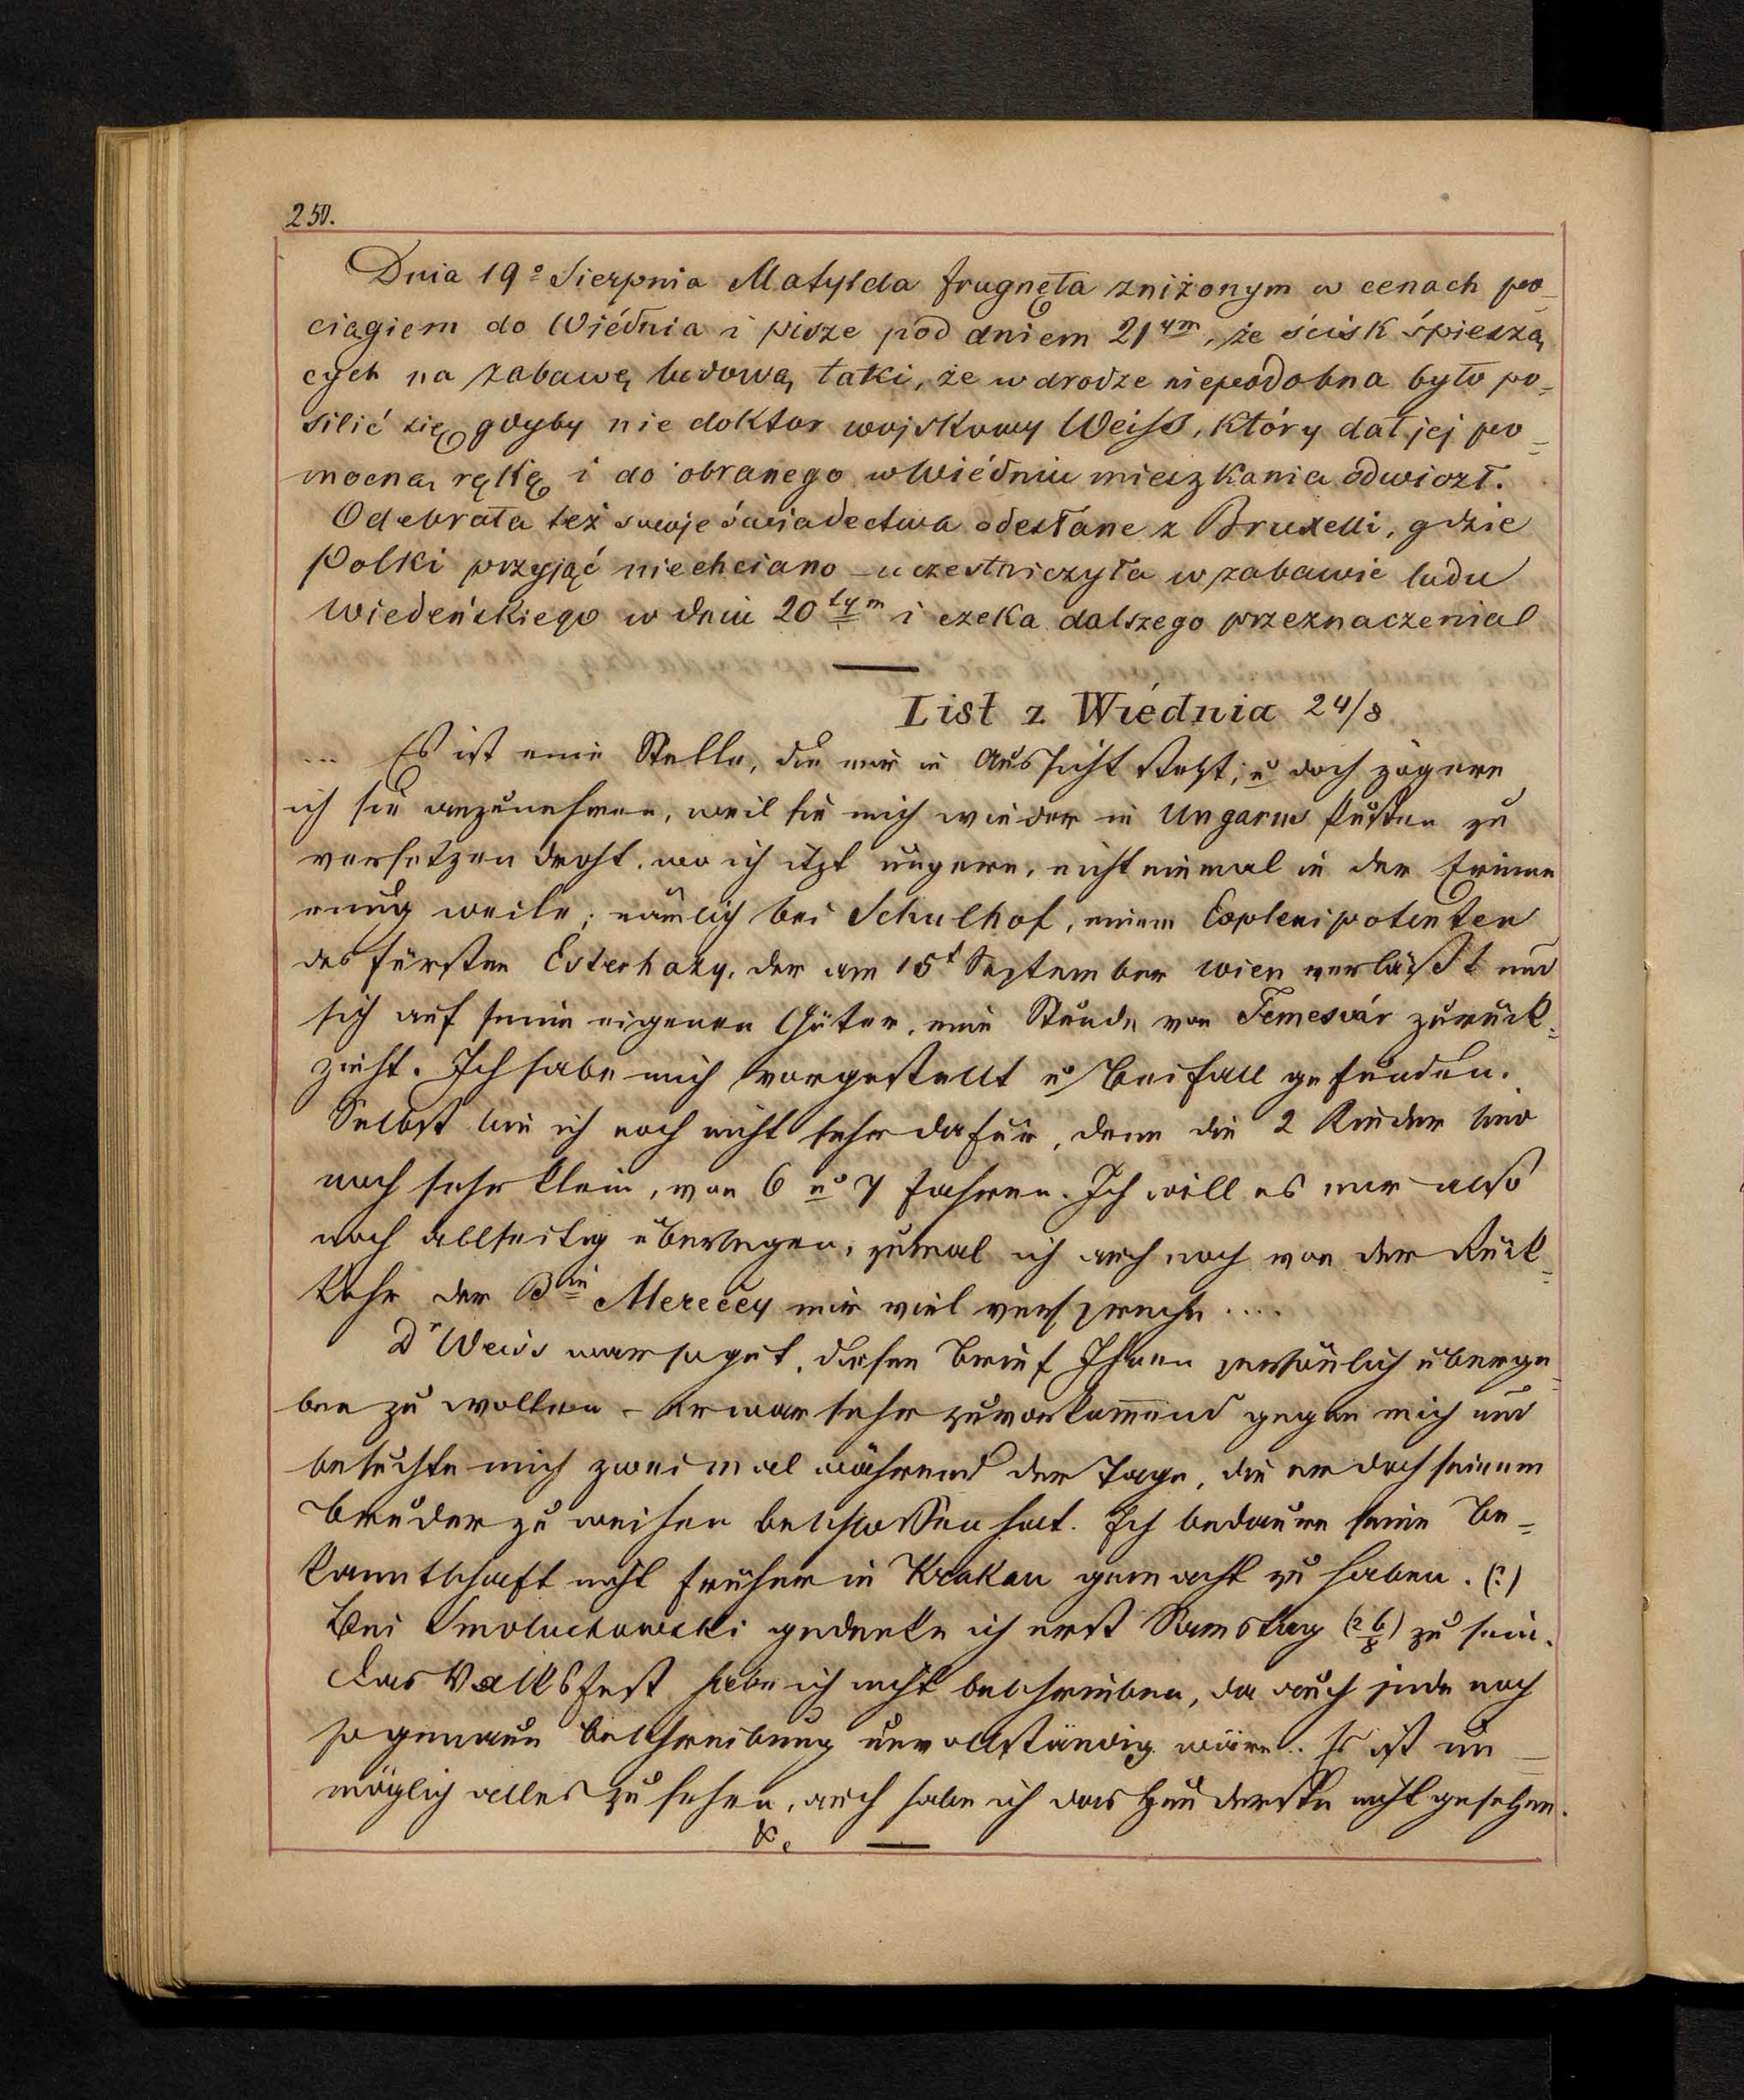 250.
Dnia 19º Sierpnia Matylda frugnęła zniżonym w cenach po=
ciągiem do Wiédnia i pisze pod dniem 21ym, że ścisk śpieszą
cych na zabawę ludową taki, że w drodze niepodobna było po=
silić się gdyby nie doktor wojskowy Weiss, który dał jej po=
mocną rękę i do obranego w Wiédniu mieszkania odwiozł.
Odebrała też swoje świadectwa odesłane z Bruxelli, gdzie
Polki przyjąć niechciano – uczestniczyła w zabawie ludu
wiedeńskiego w dniu 20tym i czeka dalszego przeznaczenia!
List z Wiédnia 24/8
... Es ist eine Stelle, die mir in Aussicht steht; u doch zögere
ich sie anzunehmen, weil sie mich wieder in Ungarns Pusten zu
versetzen droht, wo ich itzt ungern, nicht einmal in der Erinne
rung weile; nämlich bei Schulhof, einem Explenipotenten
des Fürsten Esterhazy, der am 15t September Wien verläßt und
sich auf seine eigenen Güter, eine Stunde von Temesvár zurück=
zieht. Ich habe mich vorgestellt u Beifall gefunden.
Selbst bin ich noch nicht sehr dafür, denn die 2 Kinder sind
noch sehr klein, von 6 u 7 Jahren. Ich will es mir also
noch allseitig überlegen, zumal ich auch noch von der Rück=
kehr der Bin Mereéey mir viel verspreche ....
Dr Weiss war so gut, diesen Brief Ihnen persönlich überge=
ben zu wollen – Er war sehr zuvorkommend gegen mich und
besuchte mich zweimal während der Tage, die er doch seinem
Bruder zu weihen beschlossen hat. Ich bedaure seine Be=
kanntschaft nicht früher in Krakau gemacht zu haben. (?)
Bei Smoluchowski gedenke ich erst Samstag (26/8) zu sein.
Das Volksfest habe ich nicht beschrieben, da auch jede noch
so genaue Beschreibung unvollständig wäre.. Es ist un=
möglich alles zu sehen, auch habe ich das Hunderste nicht gesehen.
&.